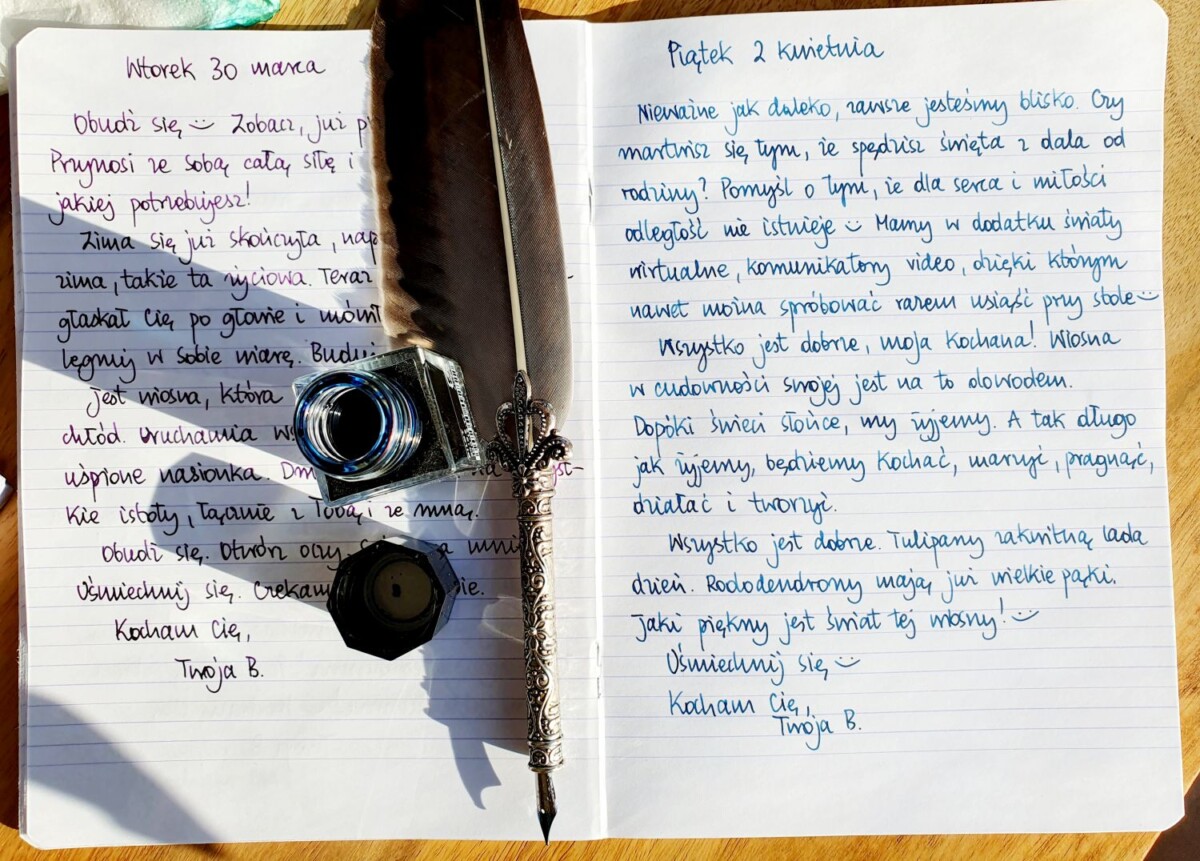 Wtorek 30 marca
Obudź się Zobacz, już
Przynosi ze sobą całą siłę i
jakiej potrzebujesz!
Zima się już skończyła,
zima, także ta życiowa. Teraz
głaskał Cię po głowie i mówił
lęgnij w sobie wiarę.
Jest wiosna, która
chłód. Uruchamia
uśpione nasionka.
kie istoty, łącznie z Tobą i ze mną.
Obudź się. Otwórz oczy.
Uśmiechnij się.
Kocham Cię,
Twoja B.
Piątek 2 kwietnia
Nieważne jak daleko, zawsze jesteśmy blisko. Czy
martwisz się tym, że spędzisz święta z dala od
rodziny? Pomyśl o tym, że dla serca i miłości
odległość nie istnieje Mamy w dodatku światy
wirtualne, komunikatory video, dzięki którym
nawet można spróbować razem usiąść przy stole
Wszystko jest dobrze, moja Kochana! Wiosna
w cudowności swojej jest na to dowodem.
Dopóki świeci słońce, my żyjemy. A tak długo
jak żyjemy, będziemy kochać, marzyć, pragnąć,
działać i tworzyć.
Wszystko jest dobrze. Tulipany zakwitną lada
dzień. Rododendrony mają już wielkie pąki.
Jaki piękny jest świat tej wiosny!
Uśmiechnij się
Kocham Cię,
Twoja B.